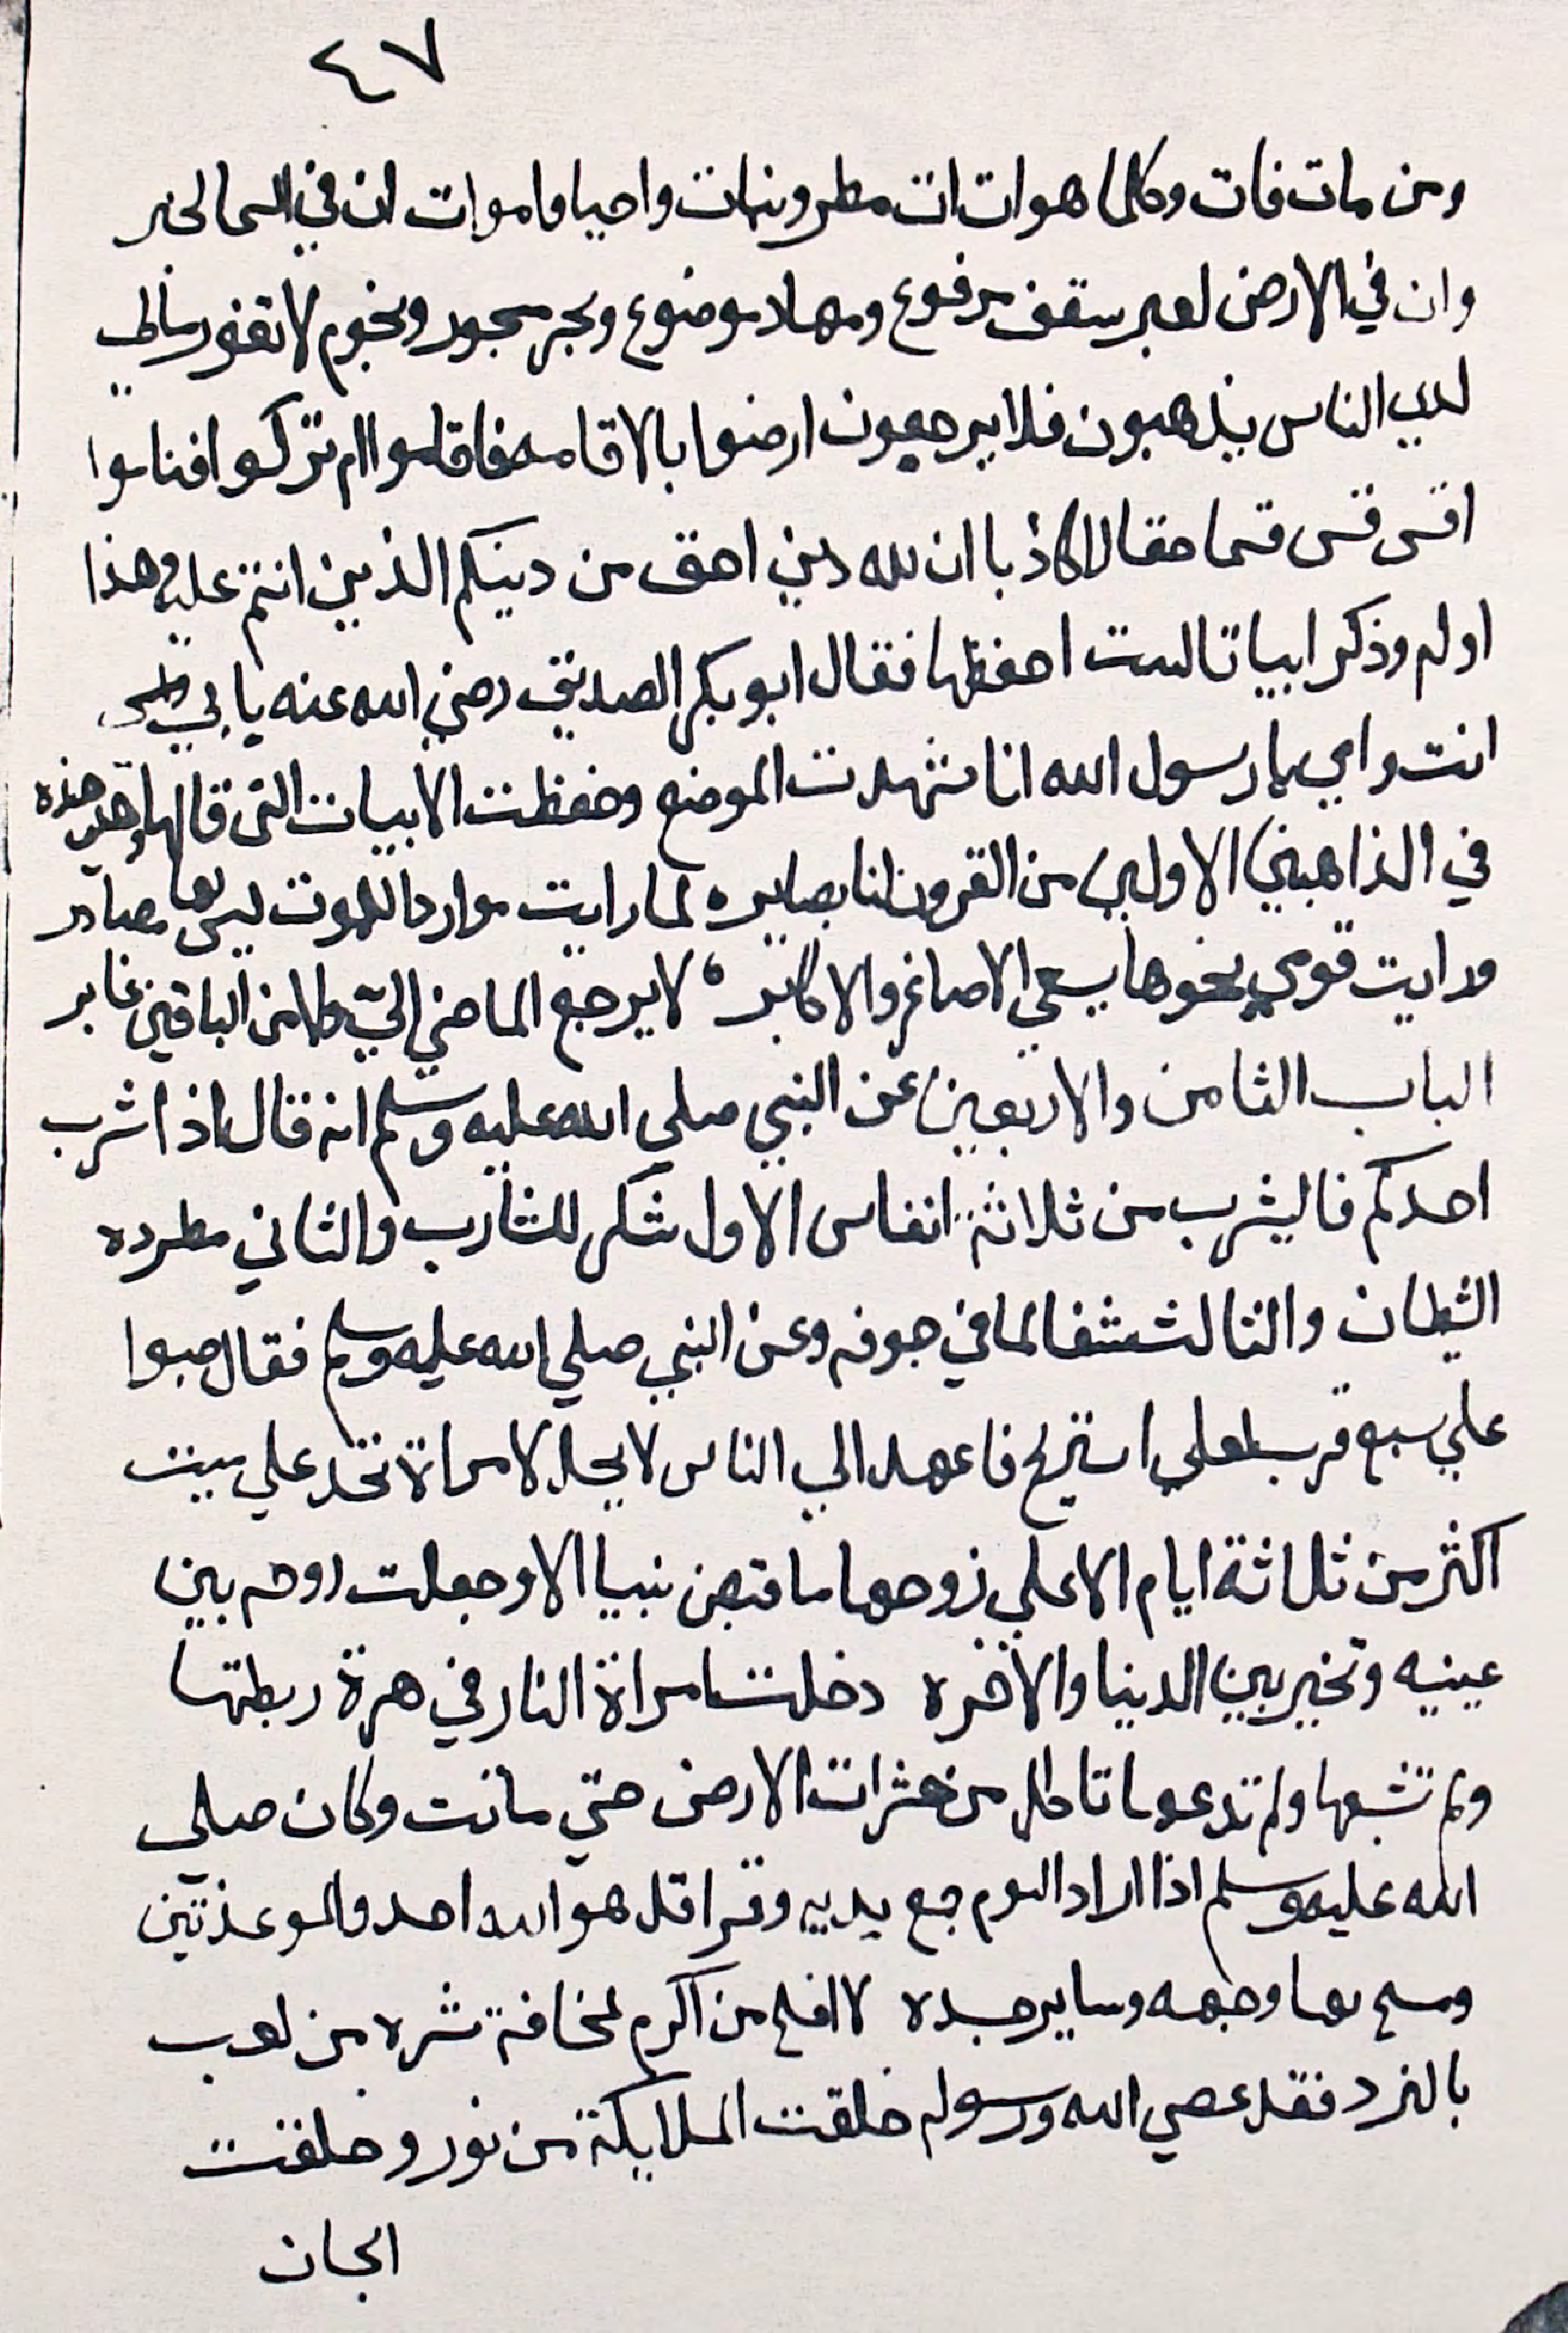 ٤٧
ومن مات فات وكلما هو ات ات مطر ونبات واحيا واموات ان في السما لخبر
وان في الارض لعبر سقف مرفوع ومهاد موضوع وبحر مسجور ونجوم لا تغور
الناس يذهبون فلا يرجعون ارضوا بالاقامه فاقاموا ام تركوا فناموا
اقس قس قسما حقا لا كاذبا ان لله دين احق من دينكم الذين انتم عليه وهذا
اولم وذكر ابياتا لست احفظها فقال ابو بكر الصديق رضي الله عنه يا بي
انت وامي يا رسول الله انا شهدت الموضع وحفظت الابيات التى قالها وهي هذه
في الذاهبين الاولين من القرون لنا بصاير ه لما رايت مواردا للموت ليس لها مصادر
ورايت قومي نحوها يسعي الاصاغر والاكابر ه لا يرجع الماضي الي ولا من الباقين غابر
الباب الثامن والاربعين عن النبي صلي الله عليه وسلم انه قال اذا شرب
احدكم فاليشرب من ثلاثة انفاس الاول شكر للشارب والثاني مطرده
الشيطان والثالث شفا لما في جوفه وعن النبي صلي الله عليه وسلم فقال صبوا
علي سبع قرب لعلي استريح فاعهد الي الناس لا يحل لامراة تحد علي ميت
اكثر من ثلاثة ايام الا علي زوجها ما قبض نبيا الا وجعلت روحه بين
عينيه وتخير بين الدنيا والاخره دخلت امراة النار في هرة ربطتها
ولم تشبعها ولم تدعها تاكل من حشرات الارض حتي ماتت وكان صلي
الله عليه وسلم اذا اراد النوم جمع يديه وقرا قل هو الله احد والموعذتين
ومسح بهما وجهه وساير جسده لا افلح من اكرم لمخافة شره من لعب
بالنرد فقد عصي الله ورسوله خلقت الملايكة من نور وخلقت
الجان